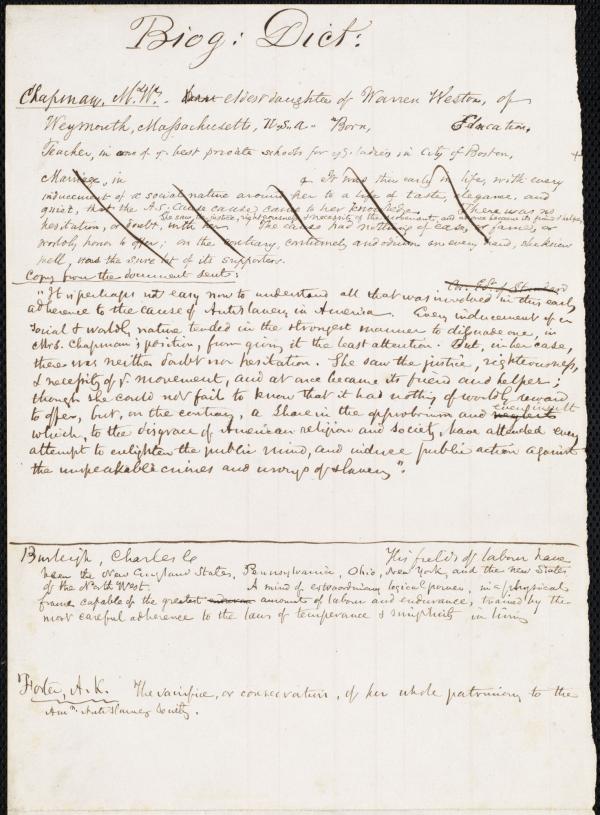 Biog: Dict:
Chapman, M. W. eldest daughter of Warren Weston, of
Weymouth, Massachusetts, U.S.A. Born, Education,
Teacher, in one of ye best private schools for yg ladies in City of Boston,
Marriage, in It was thus early in life, with every
inducement of a social nature around her to a life of taste, elegance, and
quiet, that the A.S. Cause came to her knowledge. There was no
She saw the justice, righteousness, & necessity of the movement, and at once became its friend & helper,
hesitation, or doubt, with her. The cause had nothing of ease, or fame, or
worldly honor to offer; on the contrary, contumely and odium on every hand, she knew
well, was the sure lot of its supporters.
Copy from the document sent:
"It is perhaps not easy now to understand all that was involved in this early
adherence to the cause of Antislavery in America. Every inducement of a
social & worldly nature tended in the strongest manner to dissuade one, in
Mrs. Chapman's position, from giving it the least attention. But, in her case,
there was neither doubt nor hesitation. She saw the justice, righteousness,
& necessity of ye movement, and at once became its friend and helper;
though she could not fail to know that it had nothing of worldly reward
to offer, but, on the contrary, a share in the opprobrium and neglect
which, to the disgrace of American religion and society, have attended every
attempt to enlighten the public mind, and induce public action against
the unspeakable crimes and wrongs of slavery".
Burleigh, Charles C. His fields of labour have
been the New England States, Pennsylvania, Ohio, New York, and the new States
of the North West. A mind of extraordinary logical power, in a physical
frame capable of the greatest amounts of labour and endurance, trained by the
most careful adherence to the laws of temperance & simplicity in living
Foster, A. K. The sacrifice, or consecration, of her whole patrimony to the
Amn. Anti-Slavery Society.